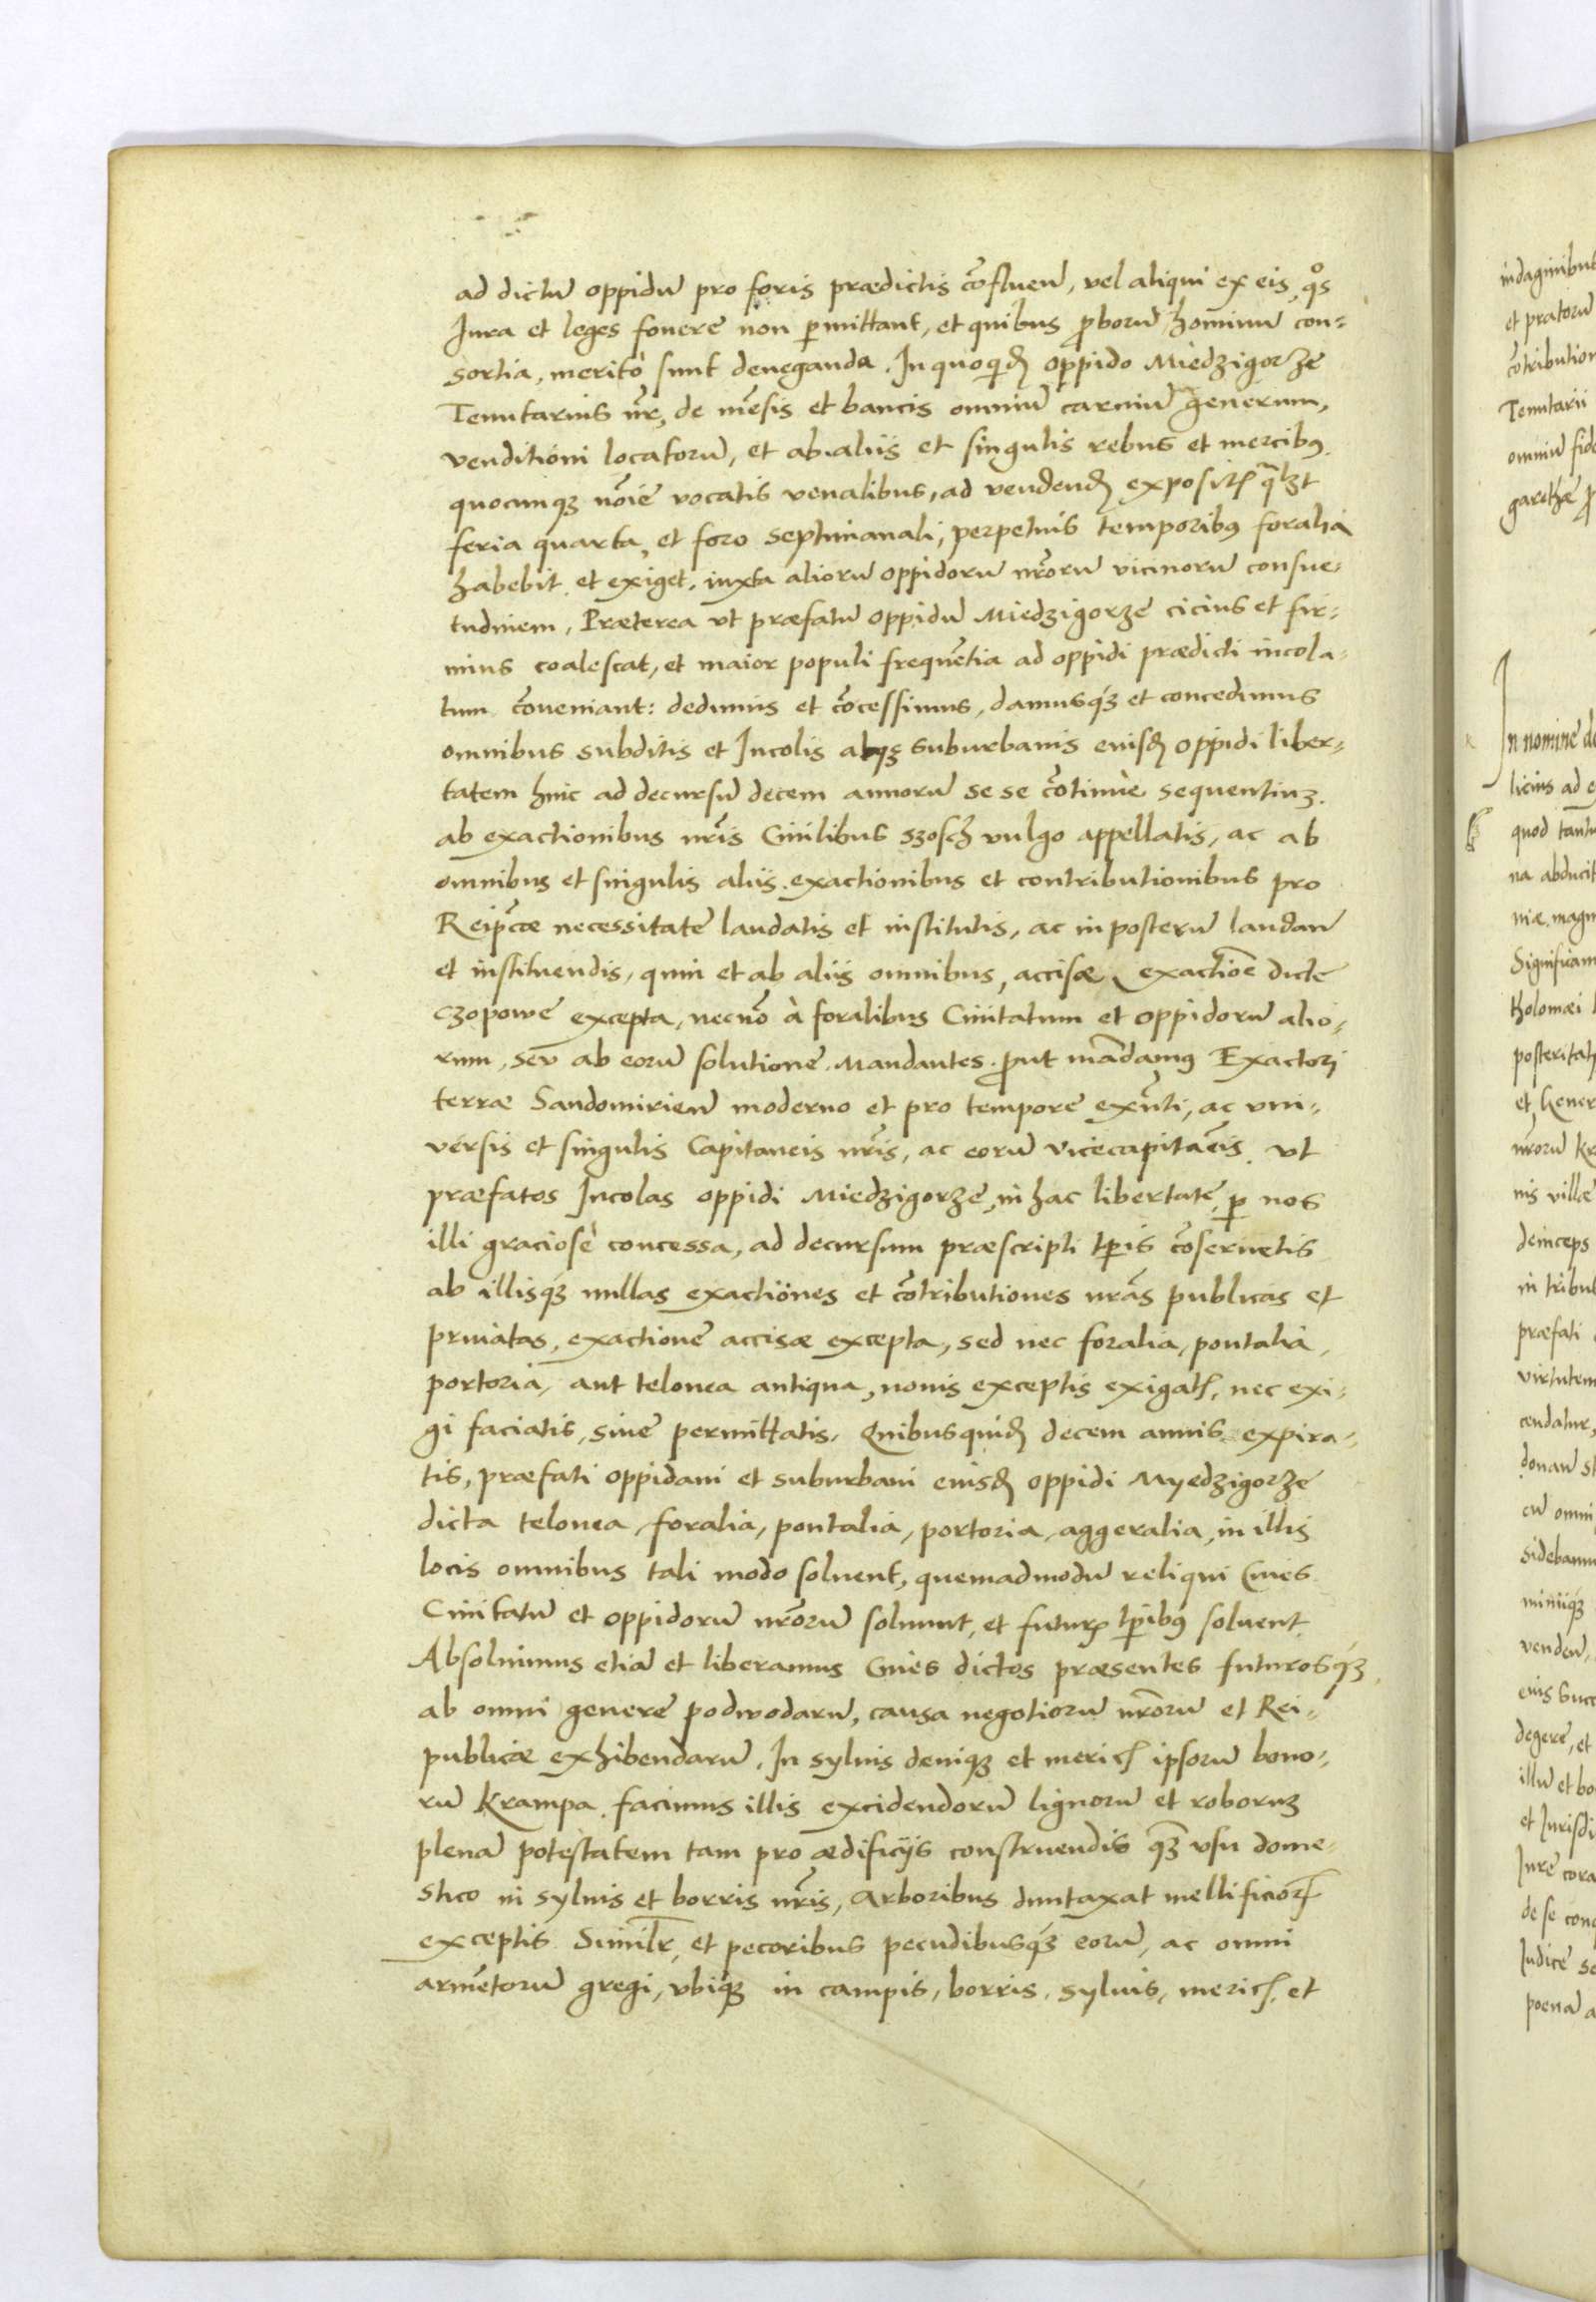 ad dictū oppidū pro foris prædictis cōfluen̄, vel aliqui ex eis, qos
Jura et leges fouere non pmittant, et quibus proborū hominū con-
sortia, merito sunt deneganda. In quoquidē oppido Miedzigorze
Tenutarius nr̄, de mēsis et bancis omniū carniū generum,
venditioni locatorū, et ab aliis et singulis rebus et mercibq
quocunqz noīe vocatis venalibus, ad vendendū expositis qlzt
feria quarta, et foro septimanali, perpetuis temporibq foralia
habebit et exiget, iuxta aliorū oppidorū nrōrū vicinorū consue-
tudinem, Præterea vt præfatū oppidū Miedzigorze cicius et fir-
mius coalescat, et maior populi frequētia ad oppidi prædicti incola-
tum cōueniant: dedimus et cōcessimus, damusqz et concedimus
omnibus subditis et Incolis atqz suburbanis eiusd oppidi liber-
tatem hinc ad decursū decem annorū se se cōtinuè sequentiuz.
ab exactionibus nrīs Ciuilibus szosch vulgo appellatis, ac ab
omnibus et singulis aliis exactionibus et contributionibus pro
Reipcæ necessitate laudatis et institutis, ac in posterū laudan̄
et instituendis, quin et ab aliis omnibus, accisæ exactiōe dicte
czopowe excepta, necnō à foralibus Ciuitatum et oppidorū alio-
rum, seu ab eorū solutione. Mandantes prout mādamq Exactori
terræ Sandomirien̄ moderno et pro tempore exnti, ac vni-
versis et singulis Capitaneis nrīs, ac eorū vicecapitāeis vt
præfatos Incolas oppidi Miedzigorze, in hac libertate, p nos
illi graciosè concessa, ad decursum præscripti tpis cōseruetis
ab illisqz nullas exactiones et cōtributiones nrās publicas et
priuatas, exactione accisæ excepta, sed nec foralia, pontalia,
portoria, aut telonea antiqua, nouis exceptis exigatis, nec exi-
gi faciatis, siue permittatis, Quibusquid decem annis expira-
tis, præfati oppidani et suburbani eiusd oppidi Myedzigorze
dicta telonea, foralia, pontalia, portoria, aggeralia, in illis
locis omnibus tali modo soluent, quemadmodū reliqui Ciues
Ciuitatū et oppidorū nrōrū soluunt, et futuris tpibq soluent.
Absoluimus etiā et liberamus Ciues dictos præsentes futurosqz
ab omni genere podwodarū, causa negotiorū nrōrū et Rei-
publicæ exhibendarū. In syluis deniqz et mericis ipsorū bono-
rū Krampa facimus illis excidendorū lignorū et roboruz
plenā potestatem tam pro ædificijs construendis qz vsu dome-
stico in syluis et borris nrīs, Arboribus duntaxat mellificiorz
exceptis Similr, et pecoribus pecudibusqz eorū, ac omni
armētorū gregi, vbiqz in campis, borris, syluis, mericis, et
indaginibus
et pratorū
cōtribution
Tenutarii
omniū fide
garethæ
In nomine do
licius ad
quod tantu
na abducit
niæ magn
Significam
tholomæi
posteritat
et Gener
nrōrū Kr
nis villæ
deinceps
in tribul
præfati
virtutem
cendatur,
donan st
cū omni
sidebamu
miniqz
venden,
eius succ
degere, et
illū et bo
et Jurisdi
Jure cora
de se conq
Judice se
poenā a